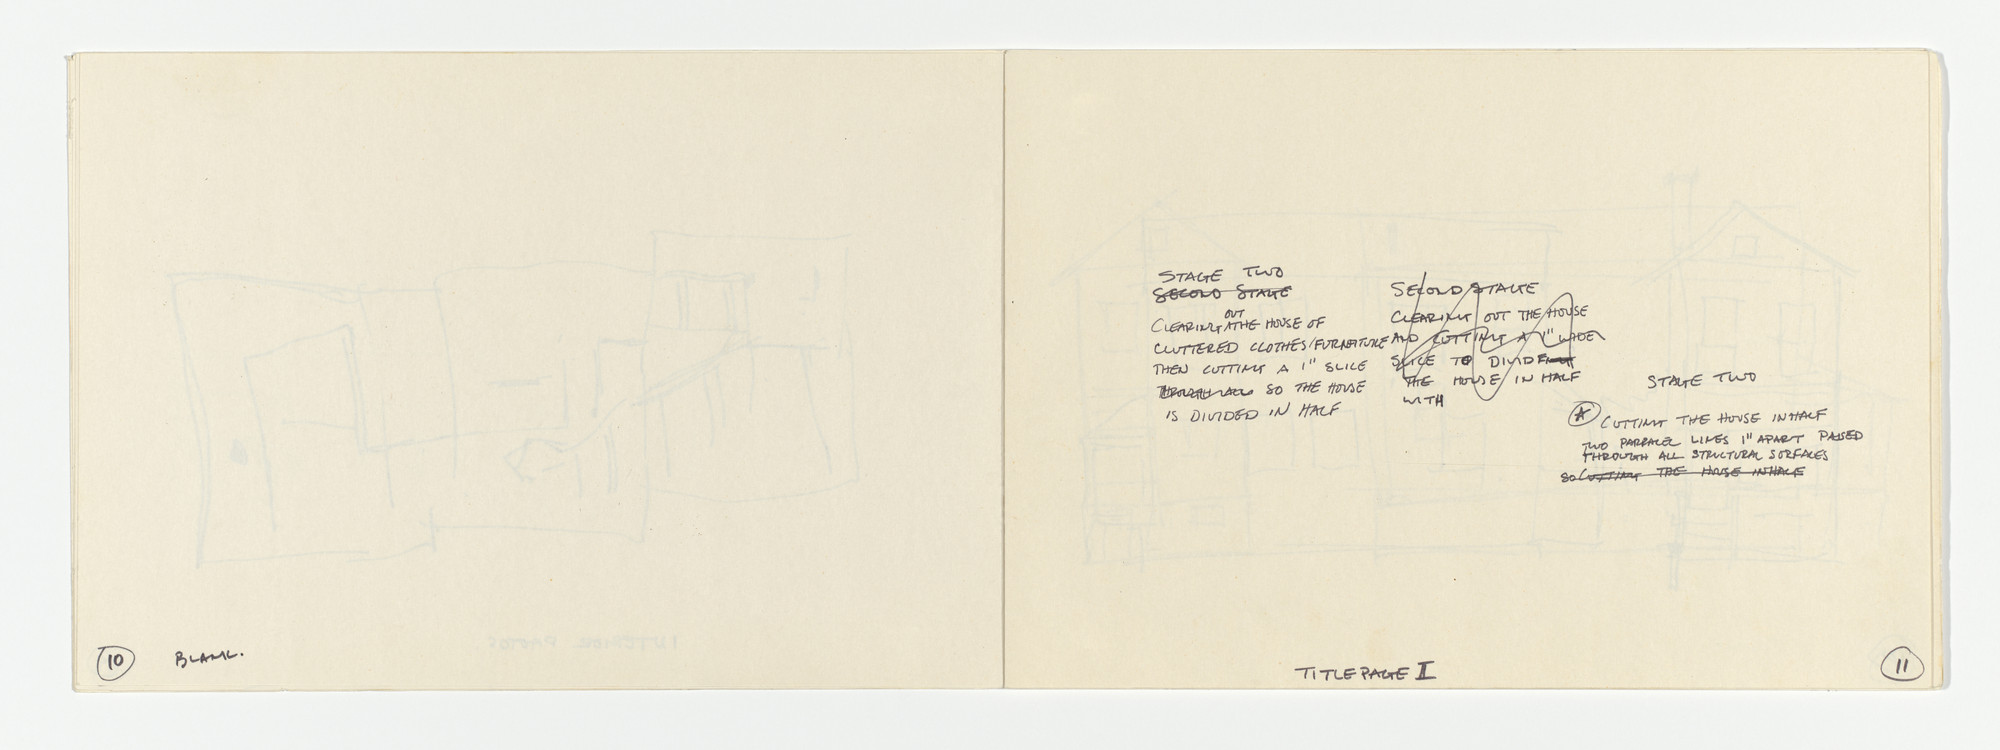 STAGE TWO
SECOND STAGE
OUT
CLEARING THE HOUSE OF
CLUTTERED CLOTHES/FURNITURE
THEN CUTTING A 1" SLICE
THROUGH ALL SO THE HOUSE
IS DIVIDED IN HALF
SECOND STAGE
CLEARING OUT THE HOUSE
AND CUTTING A 1" WIDE
SLICE TO DIVIDE
THE HOUSE IN HALF
WITH
STAGE TWO
A CUTTING THE HOUSE IN HALF
TWO PARRALEL LINES 1" APART PASSED
THROUGH ALL STRUCTURAL SURFACES
SO CUTTING THE HOUSE IN HALF
INTERIOR PHOTOS
10 BLANK.
TITLE PAGE II
11